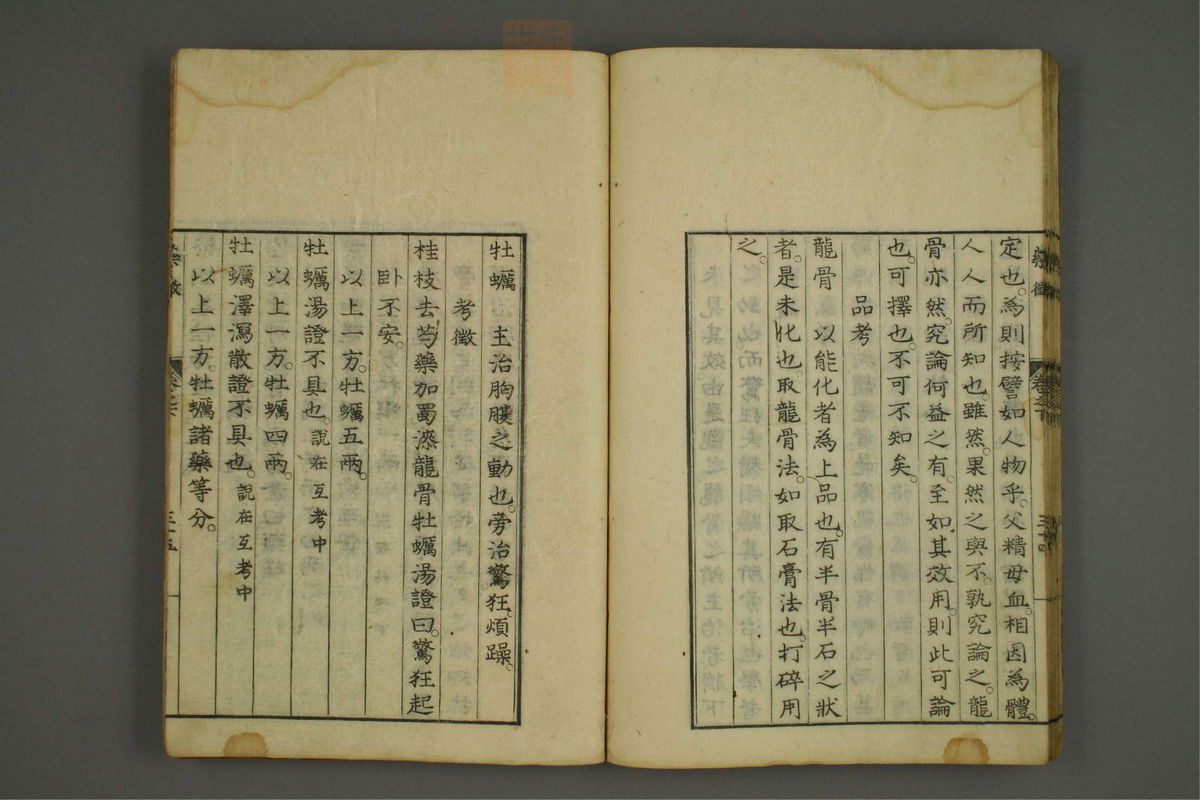 定也。為則按譬如人物乎。父精母血。相因為體。
人人而所知也。雖然。果然之與不。孰究論之。龍
骨亦然。究論何益之有。至如其效用。則此可論
也。可擇也。不可不知矣。
品考
龍骨 以能化者為上品也。有半骨半石之狀
者。是未化也。取龍骨法。如取石膏法也。打碎用
之。
牡蠣 主治胸腹之動也。旁治驚狂。煩躁。
考徵
桂枝去芍藥加蜀漆龍骨牡蠣湯證曰。驚狂起
卧不安。
以上一方。牡蠣五兩。
牡蠣湯證不具也。說在互考中
以上一方。牡蠣四兩。
牡蠣澤瀉散證不具也。說在互考中
以上一方。牡蠣諸藥等分。
藥徵
卷之下
三十四
三十五